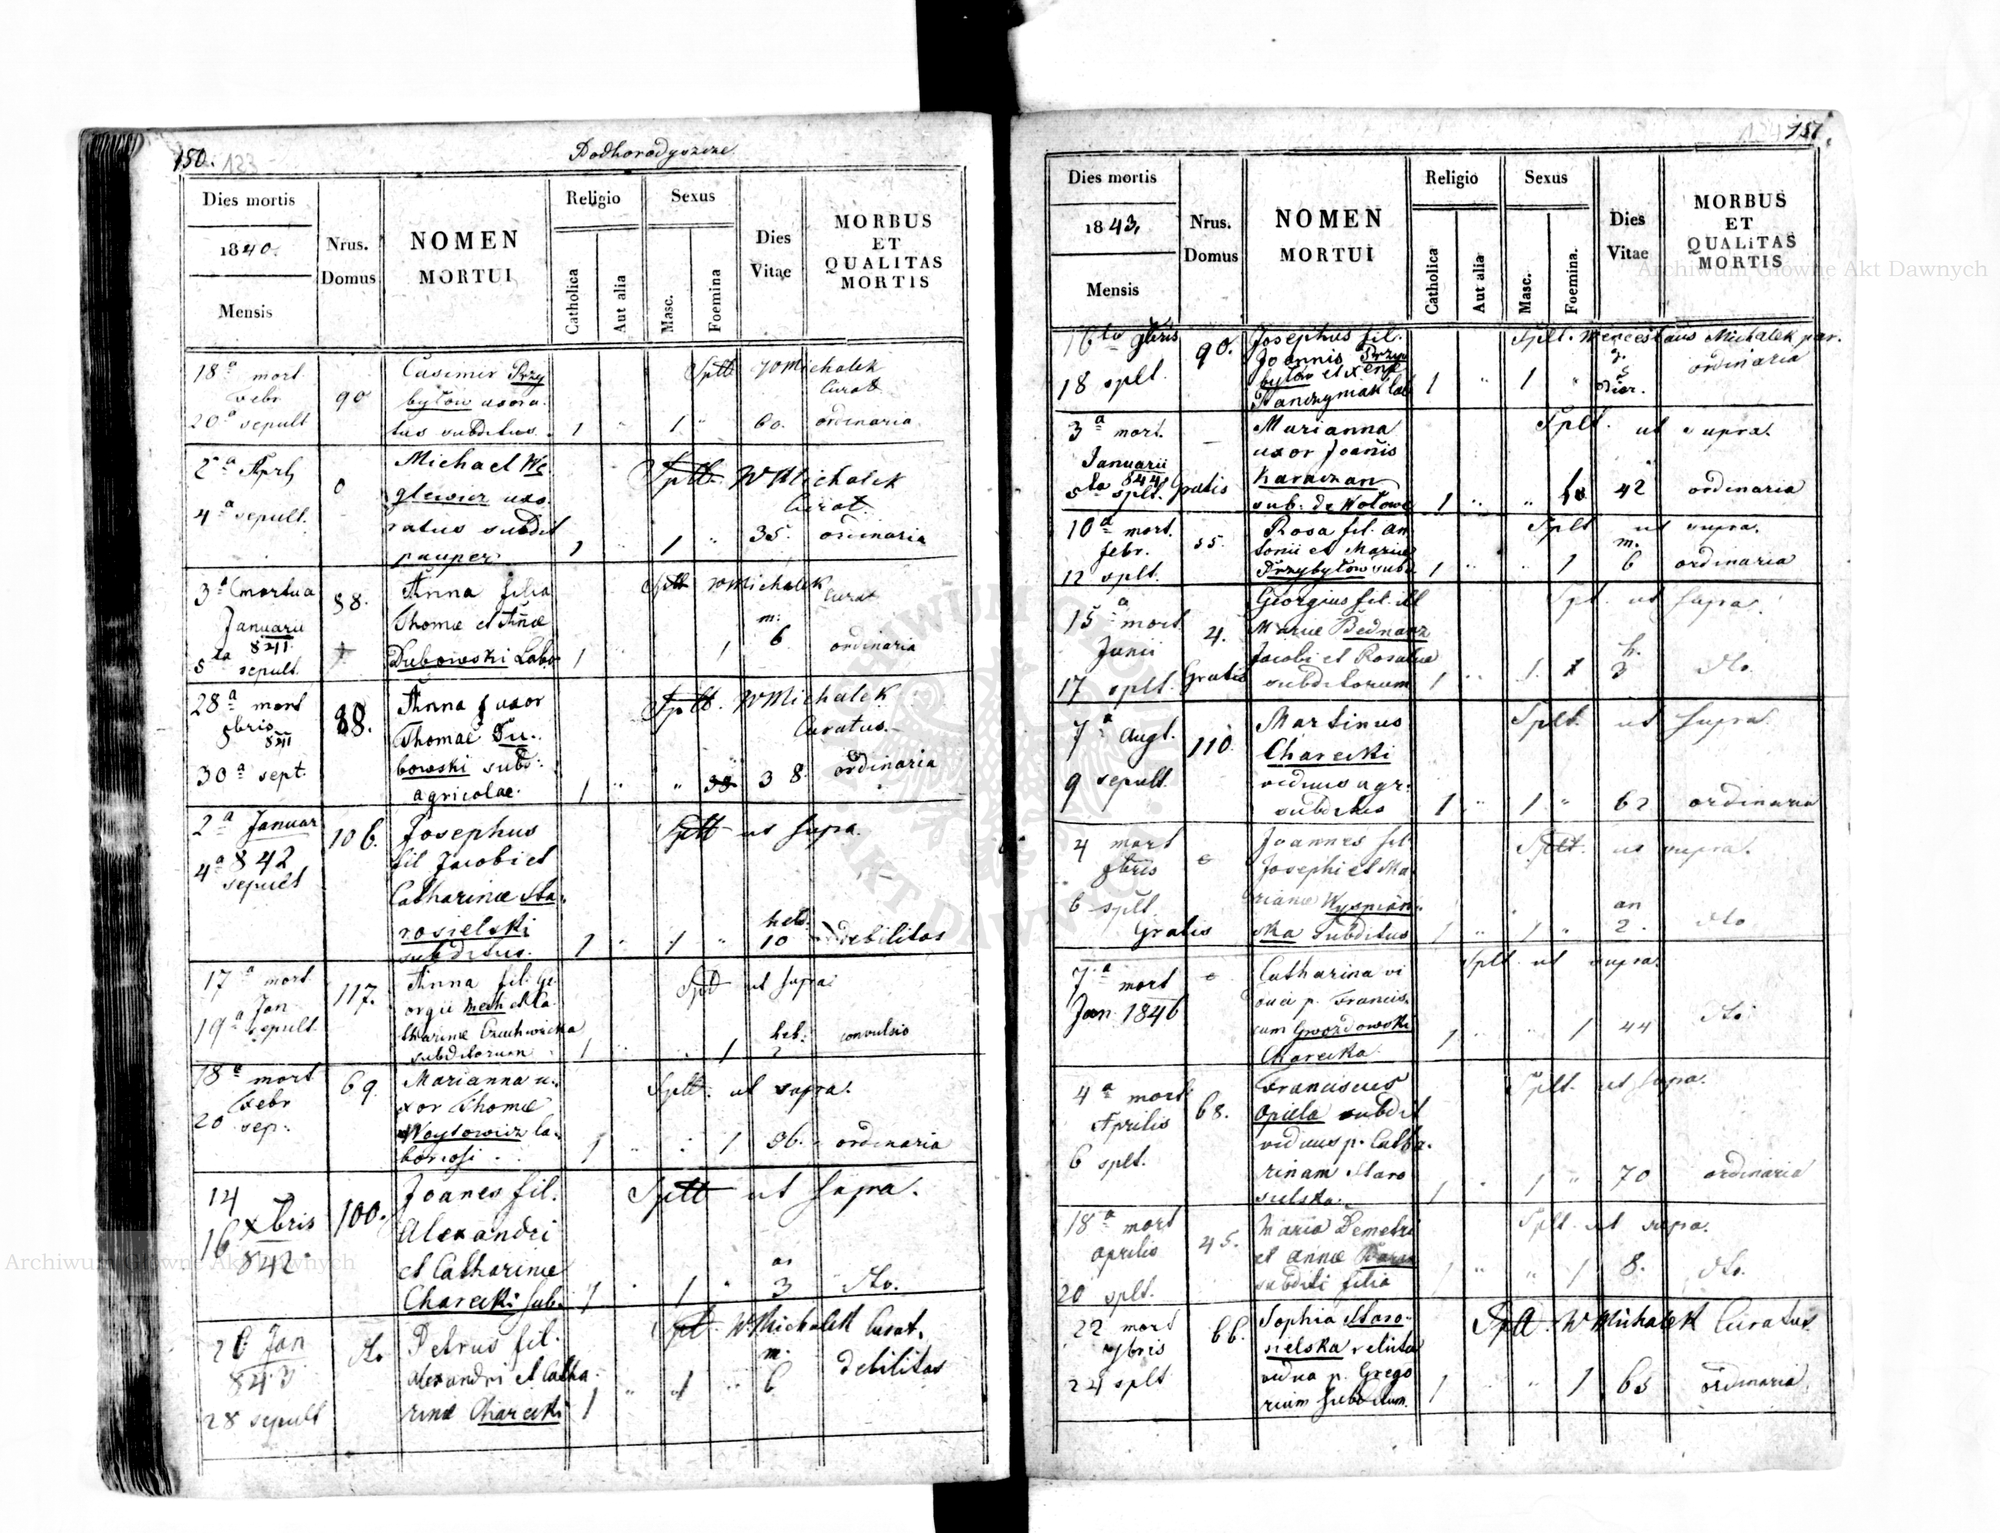 150. 123
Podhorodyszcze
Dies mortis
1840.
Mensis
Nrus.
Domus
NOMEN
MORTUI
Religio
Catholica
Aut alia
Sexus
Masc.
Foemina
Dies
Vitae
MORBUS
ET
QUALITAS
MORTIS
18ª mort
Febr
20ª sepult
90
Casimir Przy
byłow uxora
tus subditus.
1 " 1 " 60. ordinaria
Sptt W Michalek
Curat
2ª Apr
4ª sepult.
0
Michael We
glewicz uxo
ratus subdit
pauper
Sptt W Michalek
Curat
1 " 1 " 35. ordinaria
3ª mortua
Januarii
841.
5ta sepult.
88.
Anna filia
Thomæ et Annæ
Dubowski Labo
Sptt W Michalek
Curat
m.
1 1 6 ordinaria
28ª mort
841
30ª sept.
88.
Anna uxor
Thomae Du.
bowski subd:
agricolae.
Sptt. W Michalek
Curatus.
1 " " 38 ordinaria
2ª Januar
842
4ª sepult
106.
Josephus
fil Jacobi et
Catharinæ Sta.
rosielski
subditus.
Sptt ut supra.
heb.
1 " 1 " 10 debilitas
17ª mort
Jan
19ª sepult
117.
Anna fil. Ge
orgii et Ca
tharinæ
subditorum
Sptt ut supra.
heb.
1 " 1 convulsio
18ª mort
Febr
20 sep.
69.
Marianna u.
xor Thomæ
Woytowicz la.
boriosi
Sptt. ut supra.
1 " 1 36. ordinaria
14
16 Xbris
842
100.
Joanes fil.
Alexandri
et Catharinæ
Charecki sub.
Sptt ut supra.
1 " 1 " 3 dto.
26 Jan
843
28 sepult
dto
Petrus fil.
Alexandri et Catha.
rinæ Charecki
Spt. W Michalek Curat.
m.
1 " 1 " 6 debilitas
151.
Dies mortis
1843.
Mensis
Nrus.
Domus
NOMEN
MORTUI
Religio
Catholica
Aut alia
Sexus
Masc.
Foemina.
Dies
Vitae
MORBUS
ET
QUALITAS
MORTIS
16to
18 splt.
90.
Josephus fil.
Joannis Przy
byłow et
Splt. Wenceslaus Michalek par.
1 " 1 " ordinaria
3ª mort.
Januarii
844
5ta splt. Gratis
Marianna
uxor Joanis
Karaczan
sub. de Wołowe
Splt. ut supra.
1 " " 42 ordinaria
10ª mort.
febr.
12 splt.
55.
Rosa fil. An
tonii et Mariæ
Przybyłow subd
Splt ut supra.
m.
1 " " 1 6 ordinaria
15ª mort
Junii
17 splt. Gratis
4.
Georgius fil. ill
Mariæ Bednarz
Jacobi et Rosaliæ
subditorum
Spt. ut supra.
h.
1 " 1 3 dto.
7ª Augt.
9 sepult.
110.
Martinus
Charecki
viduus agr.
subditus
Splt. ut supra.
1 " 1 " 62 ordinaria
4 mort
6 splt
Gratis
Joannes fil.
Josephi et Ma.
rianæ Wyspian.
ska subditus
Splt. ut supra.
an
1 " 1 " 2. dto
7ª mort
Jan 1846
Catharina vi
dua p. Francis.
cum Gwozdowski
Charecka
Splt ut supra.
1 " " 1 44 dto
4ª mort
Aprilis
6 splt.
68.
Franciscus
Opiela subdit
viduus p. Catha.
rinam Staro
sielska.
Splt. ut supra.
1 " 1 " 70 ordinaria
18ª mort
Aprilis
20 splt.
45.
Maria Demetri
et Annæ
subditi filia
Splt. ut supra.
1 " " 1 8. dto.
22 mort
24 splt
66.
Sophia Staro.
sielska relicta
vidua p. Grego
rium subditum.
Sptt. W Michalek Curatus
1 " " 1 65 ordinaria.
Archiwum Główne Akt Dawnych
Archiwum Główne Akt Dawnych
ARCHIWUM GŁÓWNE AKT DAWNYCH